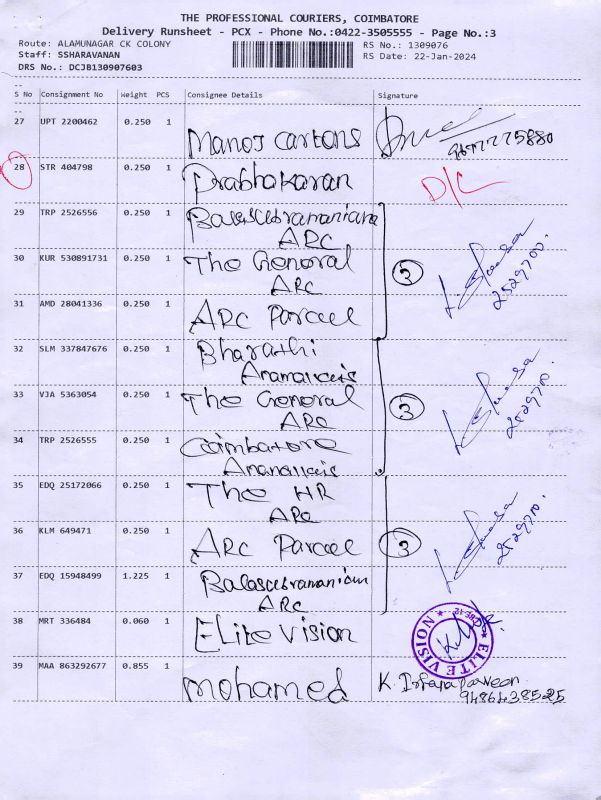 THE PROFESSIONAL COURIERS, COIMBATORE
Delivery Runsheet - PCX - Phone No.:0422-3505555 - Page No.:3
Route: ALAMUNAGAR CK COLONY RS No.: 1309076
Staff: SSHARAVANAN RS Date: 22-Jan-2024
DRS No.: DCJB130907603
S No Consignment No Weight PCS Consignee Details Signature
27 UPT 2200462 0.250 1 Manoj Cartons
28 STR 404798 0.250 1 Prabhakaran D/C
29 TRP 2526556 0.250 1 Balasubramaniam
ARC
30 KUR 530891731 0.250 1 The General 3
ARC 2529700.
31 AMD 28041336 0.250 1 ARC Parcel
32 SLM 337847676 0.250 1 Bharathi
Anamallais
33 VJA 5363054 0.250 1 The General 3
ARC 2529700.
34 TRP 2526555 0.250 1 Coimbatore
Anamallais
35 EDQ 25172066 0.250 1 The HR
ARC
36 KLM 649471 0.250 1 ARC Parcel 3
37 EDQ 15948499 1.225 1 Balasubramaniam
ARC
38 MRT 336484 0.060 1 Elite Vision ELITE VISION
39 MAA 863292677 0.855 1 Mohamed K. Irfana Parveen